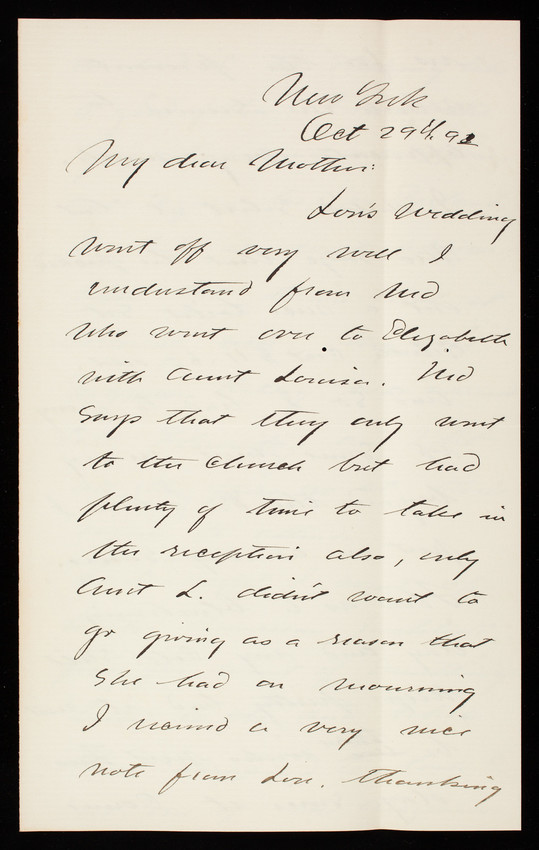 New York
Oct 29th 92
My dear Mother:
Lou's wedding
went off very well I
understand from Ned
who went over to Elizabeth
with Aunt Louisa. Ned
says that they only went
to the church but had
plenty of time to take in
the reception also, only
Aunt L. didn't want to
go giving as a reason that
she had on mourning
I received a very nice
note from Lou. thanking